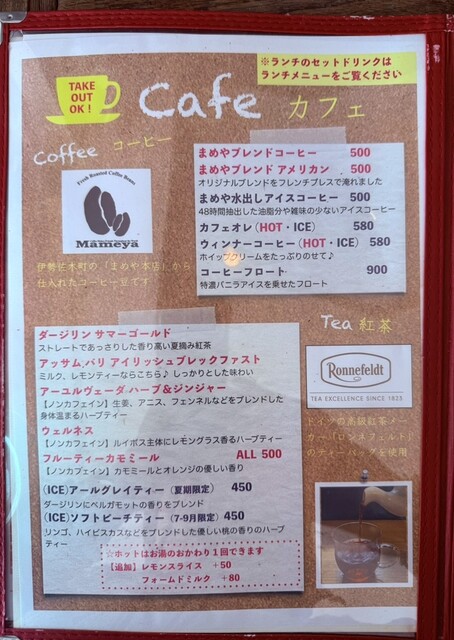 ※ランチのセットドリンクは
ランチメニューをご覧ください
TAKE
OUT
OK！
Cafe カフェ
Coffee コーヒー
Fresh Roasted Coffee Beans
Mameya
伊勢佐木町の「まめや本店」から
仕入れたコーヒー豆です
まめやブレンドコーヒー 500
まめやブレンド アメリカン 500
オリジナルブレンドをフレンチプレスで淹れました
まめや水出しアイスコーヒー 500
48時間抽出した油脂分や雑味の少ないアイスコーヒー
カフェオレ（HOT・ICE） 580
ウィンナーコーヒー（HOT・ICE） 580
ホイップクリームをたっぷりのせて♪
コーヒーフロート 900
特濃バニラアイスを乗せたフロート
Tea 紅茶
Ronnefeldt
TEA EXCELLENCE SINCE 1823
ドイツの高級紅茶メー
カー「ロンネフェルト」
のティーバッグを使用
ダージリン サマーゴールド
ストレートであっさりした香り高い夏摘み紅茶
アッサム.バリ アイリッシュブレックファスト
ミルク、レモンティーならこちら♪ しっかりとした味わい
アーユルヴェーダ.ハーブ＆ジンジャー
【ノンカフェイン】生姜、アニス、フェンネルなどをブレンドした
身体温まるハーブティー
ウェルネス
【ノンカフェイン】ルイボス主体にレモングラス香るハーブティー
フルーティーカモミール ALL 500
【ノンカフェイン】カモミールとオレンジの優しい香り
(ICE)アールグレイティー（夏期限定） 450
ダージリンにベルガモットの香りをブレンド
(ICE)ソフトピーチティー（7-9月限定）450
リンゴ、ハイビスカスなどをブレンドした優しい桃の香りのハーブ
ティー
☆ホットはお湯のおかわり１回できます
【追加】レモンスライス +50
フォームドミルク +80